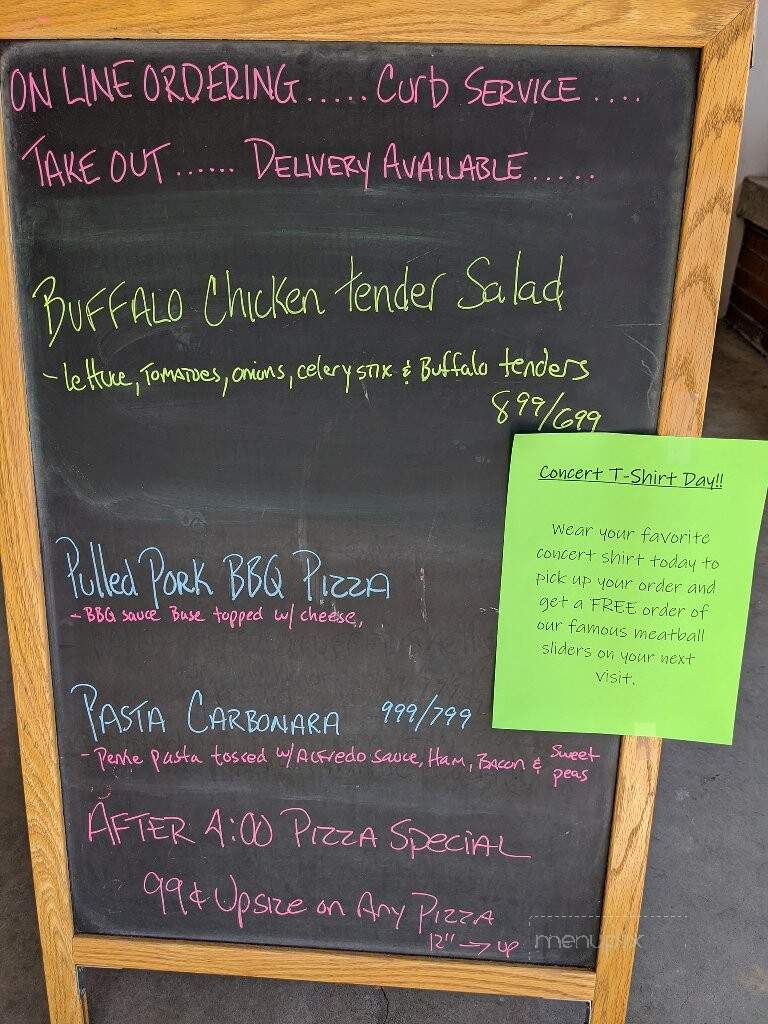 ON LINE ORDERING..... Curb SERVICE ....
TAKE OUT ...... DELIVERY AVAILABLE .....
BUFFALO Chicken tender Salad
- lettuce, TOMATOES, onions, celery STIX & Buffalo tenders
899/699
Concert T-Shirt Day!!
Wear your favorite
concert shirt today to
pick up your order and
get a FREE order of
our famous meatball
sliders on your next
visit.
Pulled Pork BBQ PIZZA
- BBQ sauce Base topped w/ cheese,
PASTA CARBONARA 999/799
- Penne pasta tossed w/ ALFredo sauce, HAM, BACON & Sweet
peas
AFTER 4:00 PIZZA SPECIAL
99¢ Upsize on Any PIZZA
12" → up
menupix